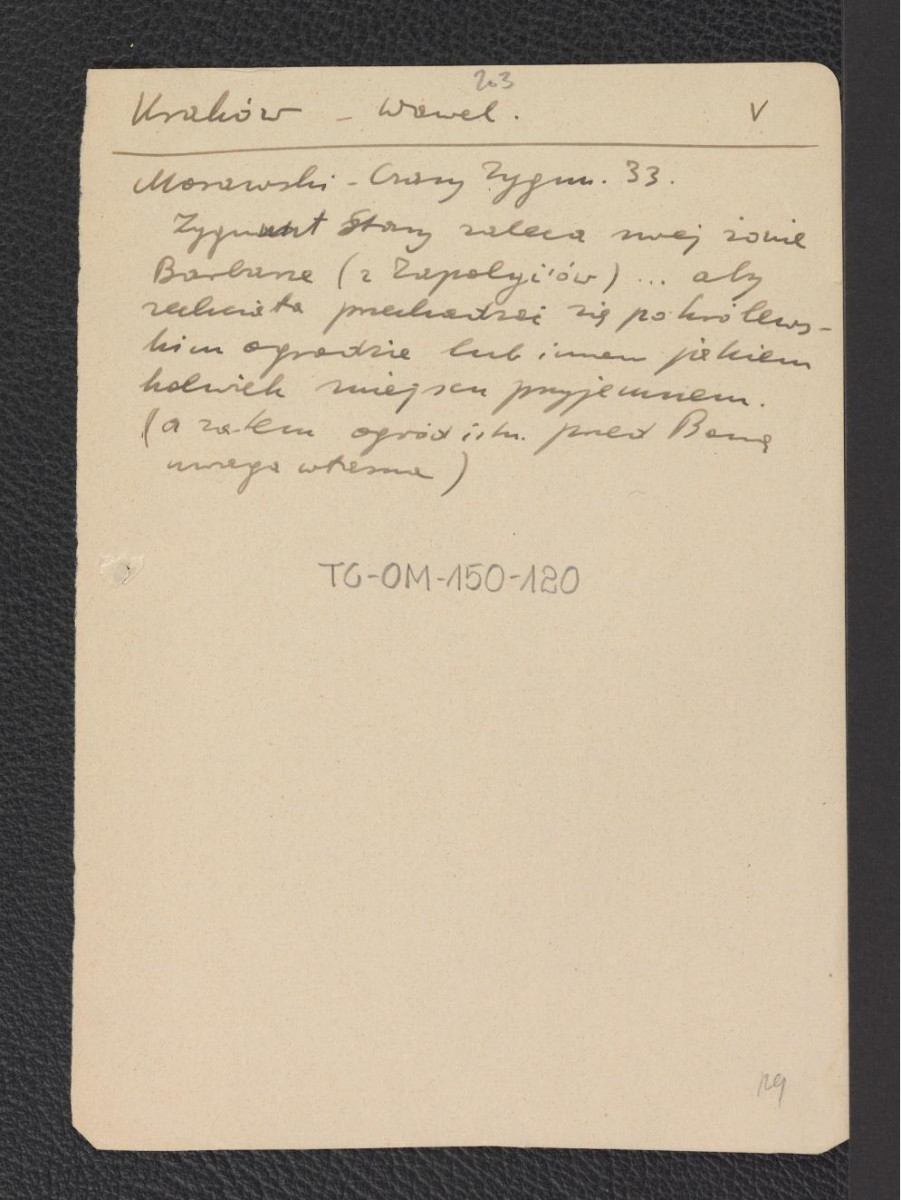 203
Kraków – Wawel. V
Morawski – Czasy Zygm. 33.
Zygmunt Stary zaleca swej żonie
Barbarze (z Zapolyi'ów) ... aby
zechciała przechadzać się po królews-
kim ogrodzie lub innem jakiem
kolwiek miejscu przyjemnem.
(a zatem ogród istn. przed Boną
uwaga własna)
TG-OM-150-120
129